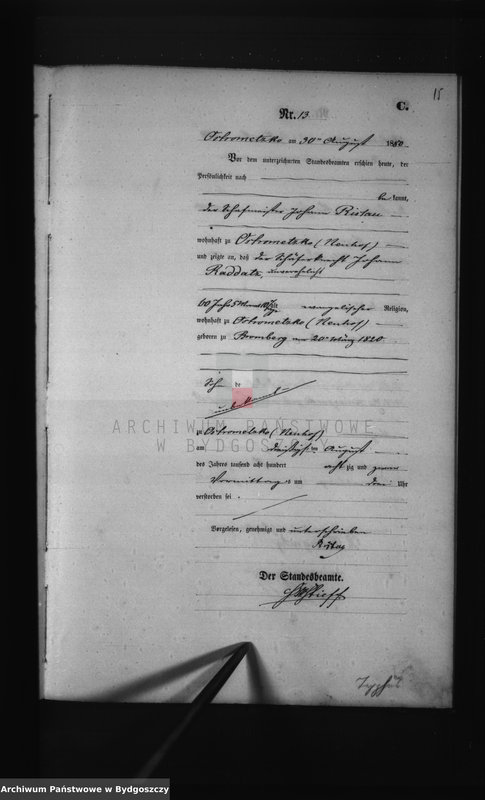 15
C.
Nr. 13
Ostrometzko am 30ten August 1880
Vor dem unterzeichneten Standesbeamten erschien heute, der
Persönlichkeit nach
be kannt,
der Schafmeister Johann Ristau
wohnhaft zu Ostrometzko (Neuhof)
und zeigte an, daß der Schäferknecht Johann
Raddatz, unverehelicht
60 Jahr 5 Monat alt, evangelischer Religion,
wohnhaft zu Ostrometzko (Neuhof)
geboren zu Bromberg am 20ten März 1820
Sohn de
unbekannt
zu Ostrometzko (Neuhof)
am dreißigsten August
des Jahres tausend acht hundert acht zig und
Vormittags um drei Uhr
verstorben sei.
Vorgelesen, genehmigt und unterschrieben
Ristau
Der Standesbeamte.
ARCHIWUM PAŃSTWOWE
W BYDGOSZCZY
Archiwum Państwowe w Bydgoszczy